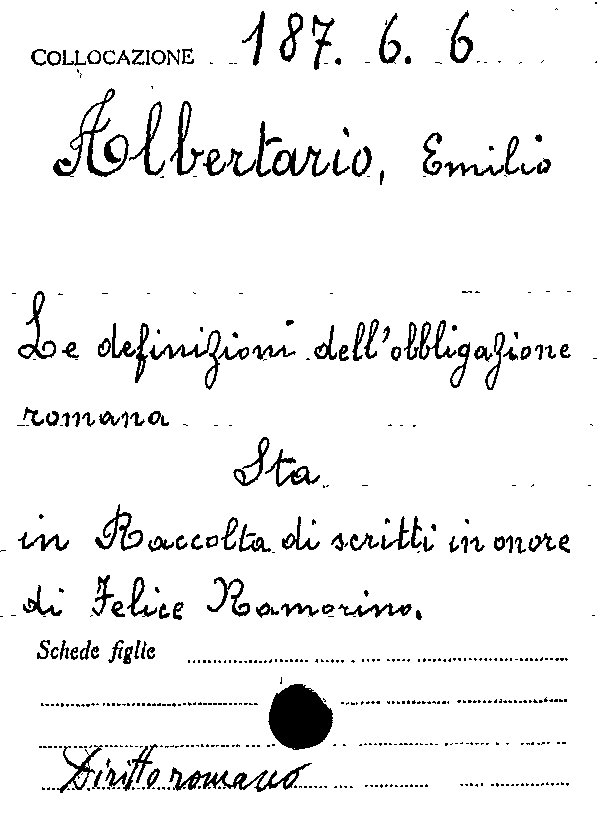 COLLOCAZIONE 187. 6. 6
Albertario, Emilio
Le definizioni dell'obbligazione
romana
Sta
in Raccolta di scritti in onore
di Felice Ramorino.
Schede figlie
Diritto romano